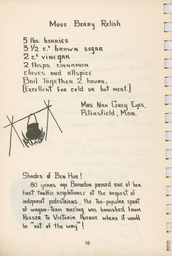 Moss Berry Relish
5 lbs. berries
3 1/2 c. brown sugar
2 c. vinegar
2 tbsps. cinnamon
cloves and allspice
Boil together 2 hours.
(Excellent for cold or hot meat.)
Mrs. Nan Grey Eyes,
Man.
Shades of Ben Hur!
80 years ago Brandon passed one of her
first traffic regulations: at the request of
indignant pedestrians, the too-popular sport
of wagon-team racing was banished from
Rosser to Victoria Avenue where it would
be "out of the way"!
10